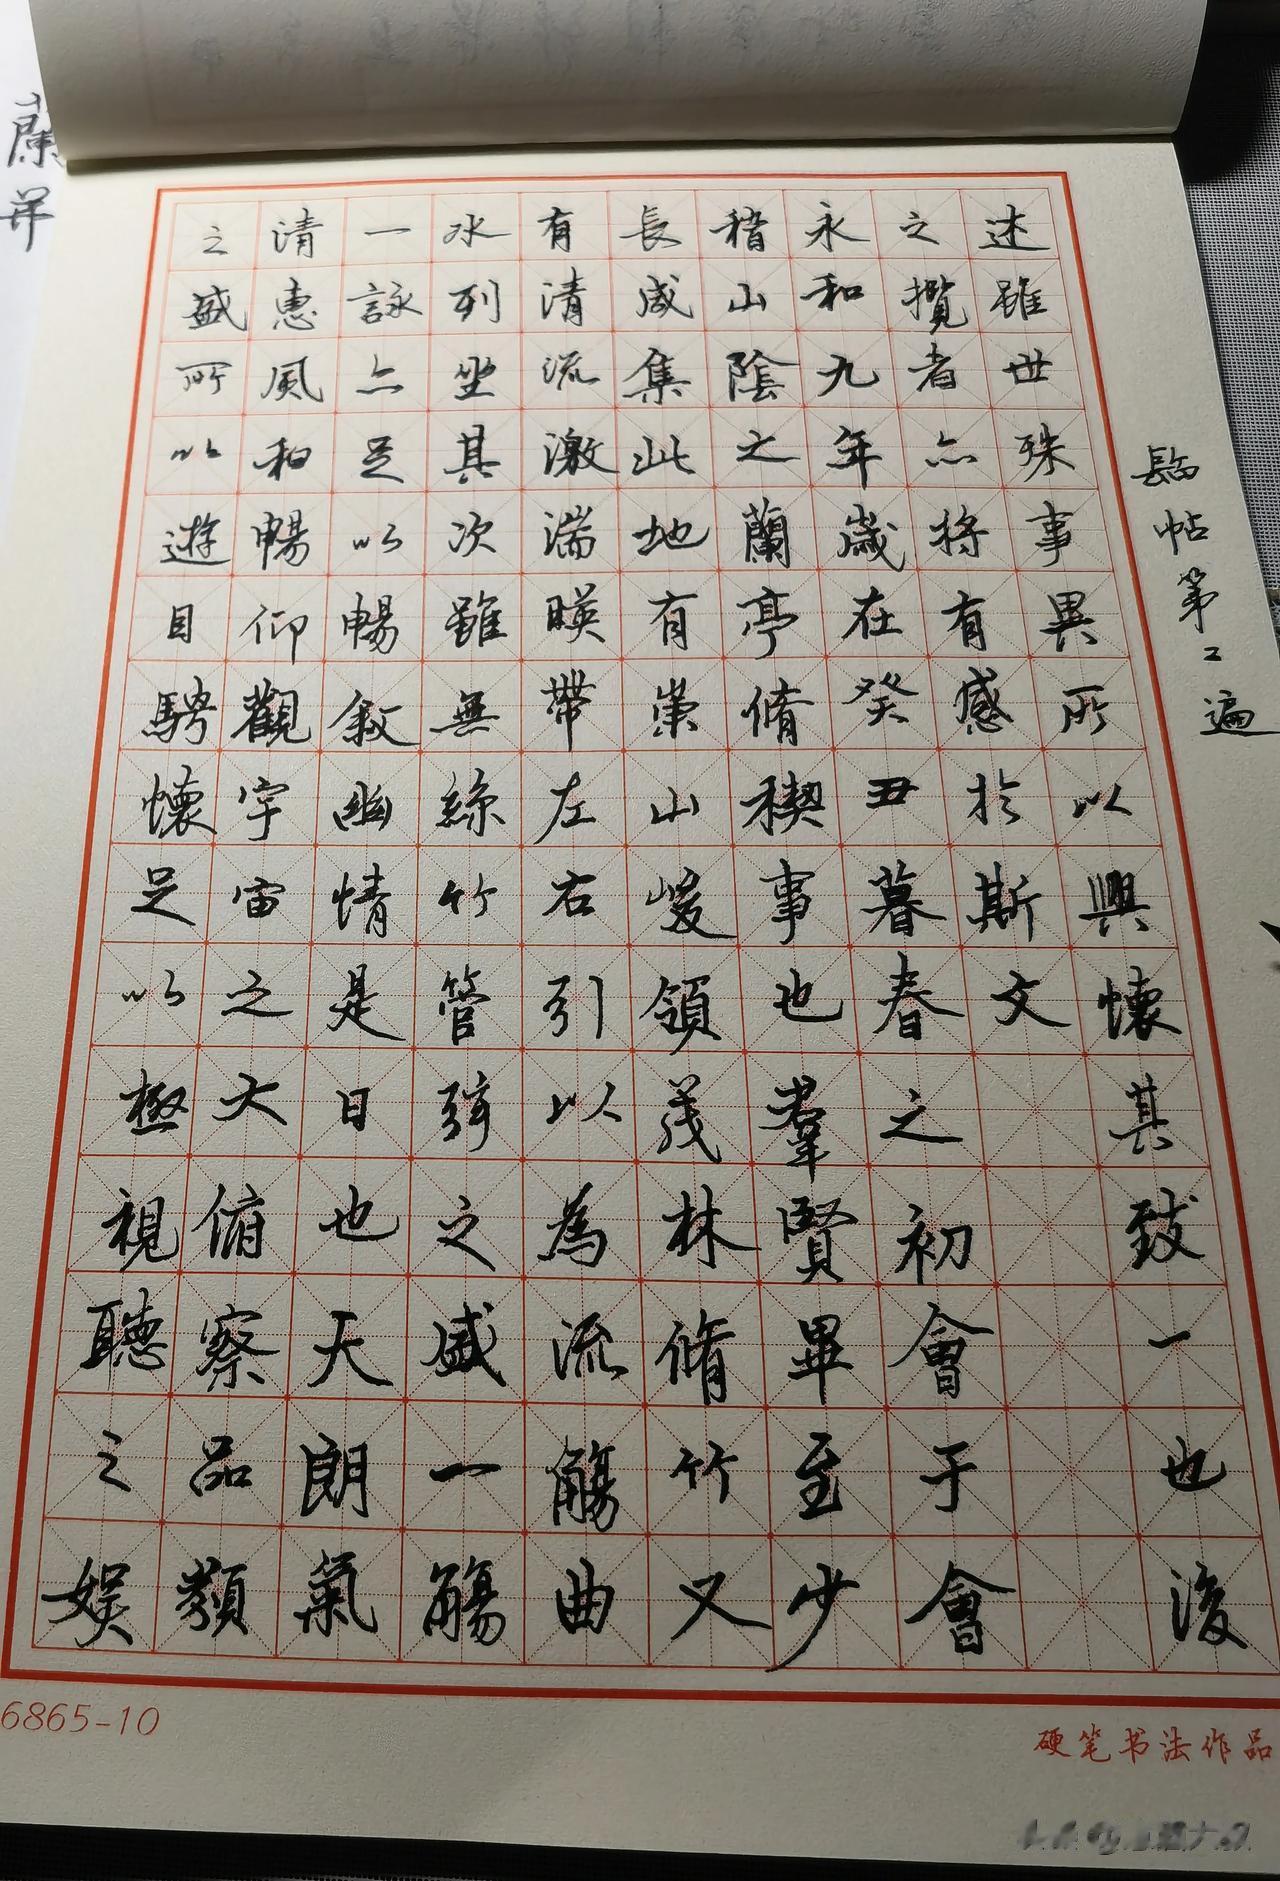 臨帖第二遍
述雖世殊事異所以興懷其致一也後
之攬者亦將有感於斯文
永和九年歲在癸丑暮春之初會于會
稽山陰之蘭亭脩稧事也羣賢畢至少
長咸集此地有崇山峻領茂林脩竹又
有清流激湍暎帶左右引以為流觴曲
水列坐其次雖無絲竹管弦之盛一觴
一詠亦足以暢敘幽情是日也天朗氣
清惠風和暢仰觀宇宙之大俯察品類
之盛所以遊目騁懷足以極視聽之娛
6865-10
硬笔书法作品